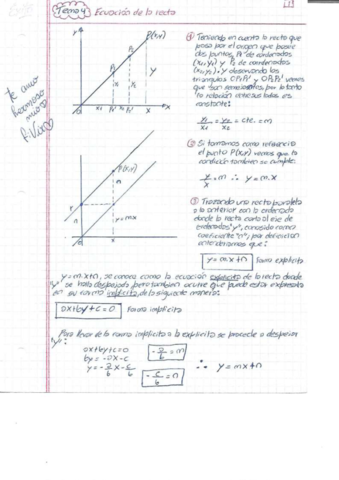 Tema 4 Ecuación de la recta
te amo
hermoso
① Teniendo en cuenta la recta que
pasa por el origen que posee
dos puntos, P₁ de coordenadas
(x₁,y₁) y P₂ de coordenadas
(x₂,y₂), y observando los
triángulos OP₁P₁' y OP₂P₂' vemos
que son semejantes, por lo tanto
la relación entre sus lados es
constante:
y₁/x₁ = y₂/x₂ = cte. = m
P(x,y)
P₂
P₁
y
x
② Si tomamos como referencia
el punto P(x,y) vemos que la
condición también se cumple.
y/x = m ∴ y = m.x
P(x,y)
n
y=mx
x
③ Trazando una recta paralela
a la anterior con la ordenada
donde la recta corta al eje de
ordenadas "y", conocido como
coeficiente "n", por definición
entenderemos que:
y=mx+n forma explícita
y=mx+n, se conoce como la ecuación explícita de la recta donde
"y" se halla despejada pero también ocurre que puede estar expresada
en su forma implícita de la siguiente manera:
ax+by+c=0 forma implícita
Para llevar de la forma implícita a la explícita se procede a despejar
"y":
ax+by+c=0
-a/b = m
by=-ax-c
y=-a/b x-c/b
-c/b = n
∴ y=mx+n